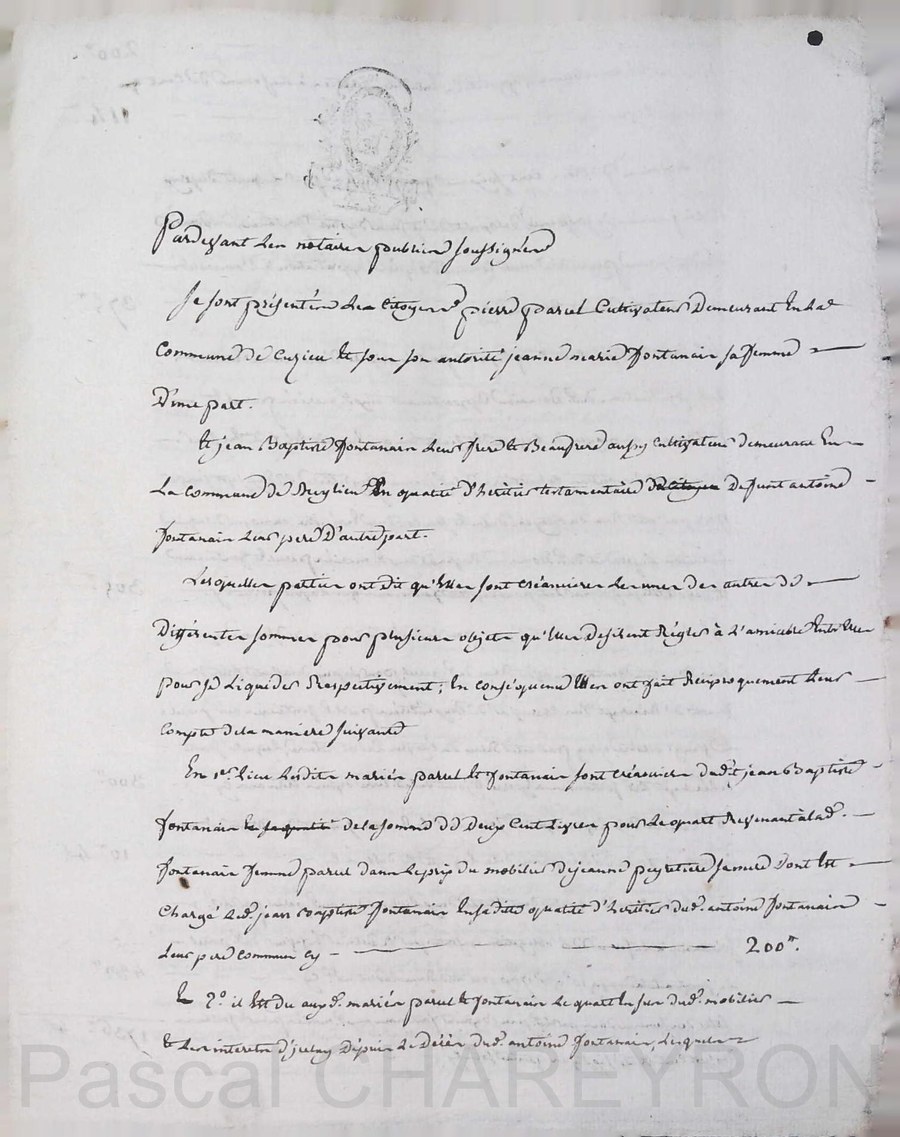 Pardevant Les notaires publics soussignés
Se sont présentés Les Citoyens pierre parcel Cultivateur Demeurant En La
Commune de Cuzieu Et sous son autorité jeanne marie fontanais sa femme
D'une part.
Et jean Baptiste fontanais Leur frere et Beaufrere aussy Cultivateur demeurant En
La Commune de En qualité d'heritier testamentaire De Defunt antoine
fontanais Leur pere D'autre part.
Lesquelles parties ont dit qu'Elles sont créancieres Les unes des autres de
Differentes sommes pour plusieurs objets qu'Elles desirent Régler à L'amiable Entr'Elles
pour se Liquider Respectivement; En conséquence Elles ont fait Réciproquement Leur
Compte de la maniere suivante
En 1er Lieu Lesdits mariés parcel Et fontanais sont créanciers dudit jean Baptiste
fontanais de la somme de Deux Cent Livres pour Le quart Revenant à lad.
fontanais femme parcel dans Le prix du mobilier de jeanne peyretiere sa mere Dont Est
Chargé Led. jean Baptiste fontanais En sa ditte qualité d'heritier dud. antoine fontanais
Leur pere Commun Cy 200tt.
2o. il Est du auxd. mariés parcel et fontanais Le quart En sur dud. mobilier
Et Les interets d'jceluy Depuis Le Décès dud. antoine fontanais, Lesquels
Pascal CHAREYRON